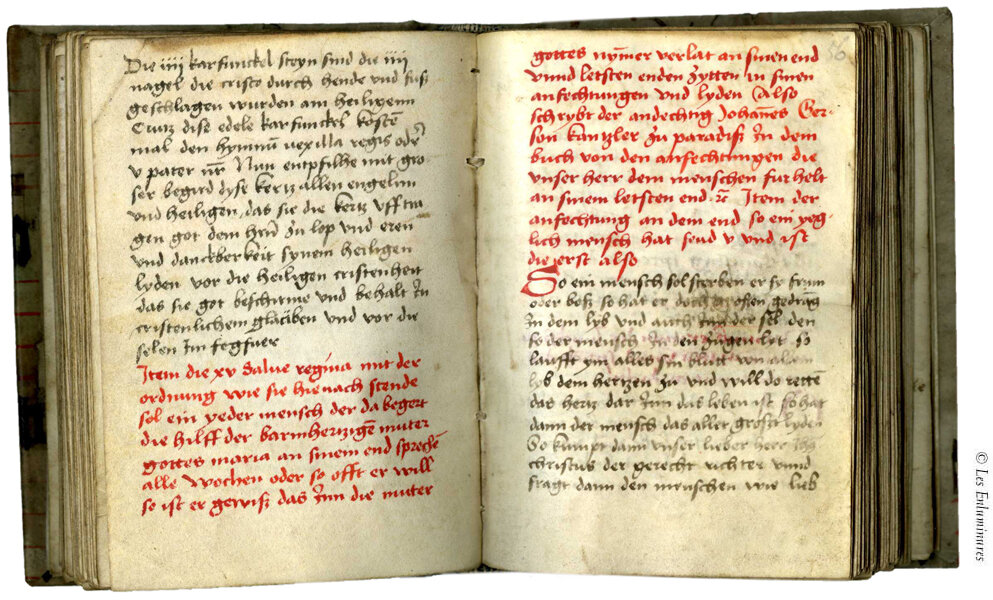 Die iiii karfunckel steyn sind die iiii
nagel die cristo durch hende und fuß
geschlagen wurden am heiligenn
Crutz dise edele karfunckel kosten
mal den hymnu vexilla regis oder
v pater nr̄ Nun entpfilhe mit gro
ser begird dyse kertz allen engelin
und heiligen, das sie die kertz vff tra
gen got dem hrn̄ zu lop und eren
und danckberkeit synem heiligen
lyden vor die heiligen cristenheit
das sie got beschirme und behalt in
cristenlichem glauben und vor die
selen im fegfuer
Item die xv Salue regina mit der
ordnung wie sie hie nach stende
sol ein yeder mensch der da begert
die hilff der barmhertzigē muter
gottes maria an sinem end sprechē
alle wochen oder so offt er will
so ist er gewiß das Inn die muter
56
gottes nymer verlat an sinen end
vnnd letsten enden zytten in sinen
anfechtungen vnd lyden Also
schrybt der andechtig Johannes Ger-
son kantzler zu paradiß In dem
buch von den anfechtungen die
vnser herr dem menschen furhelt
an sinem letsten end ꝛc Item der
anfechtung an dem end so ein yeg-
lich mensch hat seind v und ist
die erst also
So ein mensch sol sterben er sy frum
oder boß so hat er doch grossen gedrāg
In dem lyb und auch Inn der sel den
so der mensch In den zugen lyt so
laufft ym alles sin blutt von allem
lyb dem hertzen zu und will do rettē
das hertz dar Inn das leben ist so hat
dann der mensch das aller grost lyden
So kumpt dann vnser lieber herr Ihs
christus der gerecht richter vnnd
fragt dann den menschen wie lieb
© Les Enluminures